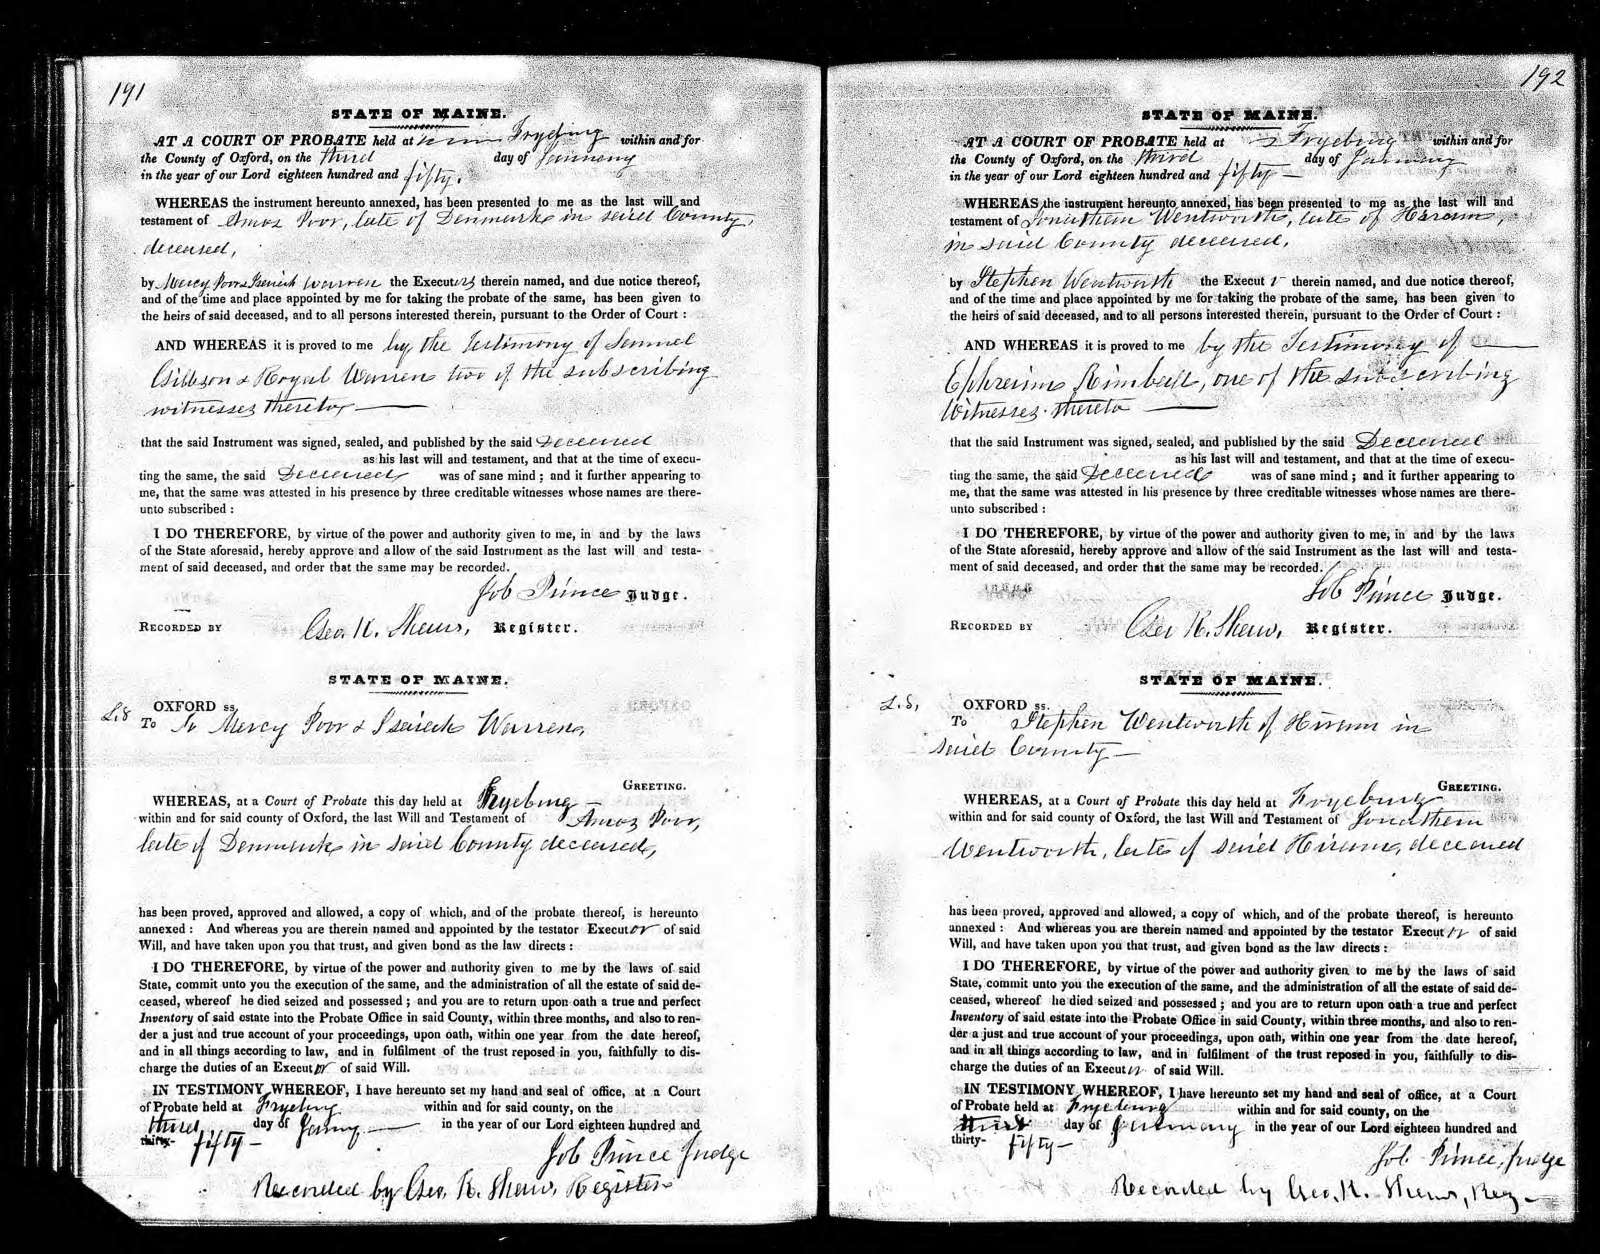 191
STATE OF MAINE.
AT A COURT OF PROBATE held at Fryeburg within and for
the County of Oxford, on the third day of January
in the year of our Lord eighteen hundred and fifty.
WHEREAS the instrument hereunto annexed, has been presented to me as the last will and
testament of Amos Poor, late of Denmark in said County,
deceased,
by Mercy Poor & Isaiah Warren the Executors therein named, and due notice thereof,
and of the time and place appointed by me for taking the probate of the same, has been given to
the heirs of said deceased, and to all persons interested therein, pursuant to the Order of Court :
AND WHEREAS it is proved to me by the Testimony of Samuel
Gibbson & Royal Warren two of the subscribing
witnesses thereto,
that the said Instrument was signed, sealed, and published by the said Deceased
as his last will and testament, and that at the time of execu-
ting the same, the said Deceased was of sane mind ; and it further appearing to
me, that the same was attested in his presence by three creditable witnesses whose names are there-
unto subscribed :
I DO THEREFORE, by virtue of the power and authority given to me, in and by the laws
of the State aforesaid, hereby approve and allow of the said Instrument as the last will and testa-
ment of said deceased, and order that the same may be recorded.
Job Prince Judge.
RECORDED BY Geo. K. Shaw, Register.
STATE OF MAINE.
L.S OXFORD ss.
To To Mercy Poor & Isaiah Warren,
GREETING.
WHEREAS, at a Court of Probate this day held at Fryeburg —
within and for said county of Oxford, the last Will and Testament of Amos Poor,
late of Denmark in said County deceased,
has been proved, approved and allowed, a copy of which, and of the probate thereof, is hereunto
annexed : And whereas you are therein named and appointed by the testator Executor of said
Will, and have taken upon you that trust, and given bond as the law directs :
I DO THEREFORE, by virtue of the power and authority given to me by the laws of said
State, commit unto you the execution of the same, and the administration of all the estate of said de-
ceased, whereof he died seized and possessed ; and you are to return upon oath a true and perfect
Inventory of said estate into the Probate Office in said County, within three months, and also to ren-
der a just and true account of your proceedings, upon oath, within one year from the date hereof,
and in all things according to law, and in fulfilment of the trust reposed in you, faithfully to dis-
charge the duties of an Executor of said Will.
IN TESTIMONY WHEREOF, I have hereunto set my hand and seal of office, at a Court
of Probate held at Fryeburg within and for said county, on the
third day of January in the year of our Lord eighteen hundred and
thirty- fifty —
Job Prince Judge
Recorded by Geo. K. Shaw, Register
192
STATE OF MAINE.
AT A COURT OF PROBATE held at Fryeburg within and for
the County of Oxford, on the third day of January
in the year of our Lord eighteen hundred and fifty —
WHEREAS the instrument hereunto annexed, has been presented to me as the last will and
testament of Jonathan Wentworth, late of Hiram,
in said County deceased,
by Stephen Wentworth the Executor therein named, and due notice thereof,
and of the time and place appointed by me for taking the probate of the same, has been given to
the heirs of said deceased, and to all persons interested therein, pursuant to the Order of Court :
AND WHEREAS it is proved to me by the Testimony of
Ephraim Kimball, one of the subscribing
Witnesses thereto
that the said Instrument was signed, sealed, and published by the said Deceased
as his last will and testament, and that at the time of execu-
ting the same, the said Deceased was of sane mind ; and it further appearing to
me, that the same was attested in his presence by three creditable witnesses whose names are there-
unto subscribed :
I DO THEREFORE, by virtue of the power and authority given to me, in and by the laws
of the State aforesaid, hereby approve and allow of the said Instrument as the last will and testa-
ment of said deceased, and order that the same may be recorded.
Job Prince Judge.
RECORDED BY Geo K. Shaw, Register.
STATE OF MAINE.
L.S, OXFORD ss.
To Stephen Wentworth of Hiram in
said County —
GREETING.
WHEREAS, at a Court of Probate this day held at Fryeburg
within and for said county of Oxford, the last Will and Testament of Jonathan
Wentworth, late of said Hiram, deceased
has been proved, approved and allowed, a copy of which, and of the probate thereof, is hereunto
annexed : And whereas you are therein named and appointed by the testator Executor of said
Will, and have taken upon you that trust, and given bond as the law directs :
I DO THEREFORE, by virtue of the power and authority given to me by the laws of said
State, commit unto you the execution of the same, and the administration of all the estate of said de-
ceased, whereof he died seized and possessed ; and you are to return upon oath a true and perfect
Inventory of said estate into the Probate Office in said County, within three months, and also to ren-
der a just and true account of your proceedings, upon oath, within one year from the date hereof,
and in all things according to law, and in fulfilment of the trust reposed in you, faithfully to dis-
charge the duties of an Executor of said Will.
IN TESTIMONY WHEREOF, I have hereunto set my hand and seal of office, at a Court
of Probate held at Fryeburg within and for said county, on the
third day of January in the year of our Lord eighteen hundred and
thirty- fifty —
Job Prince, Judge
Recorded by Geo. K. Shaw, Reg —